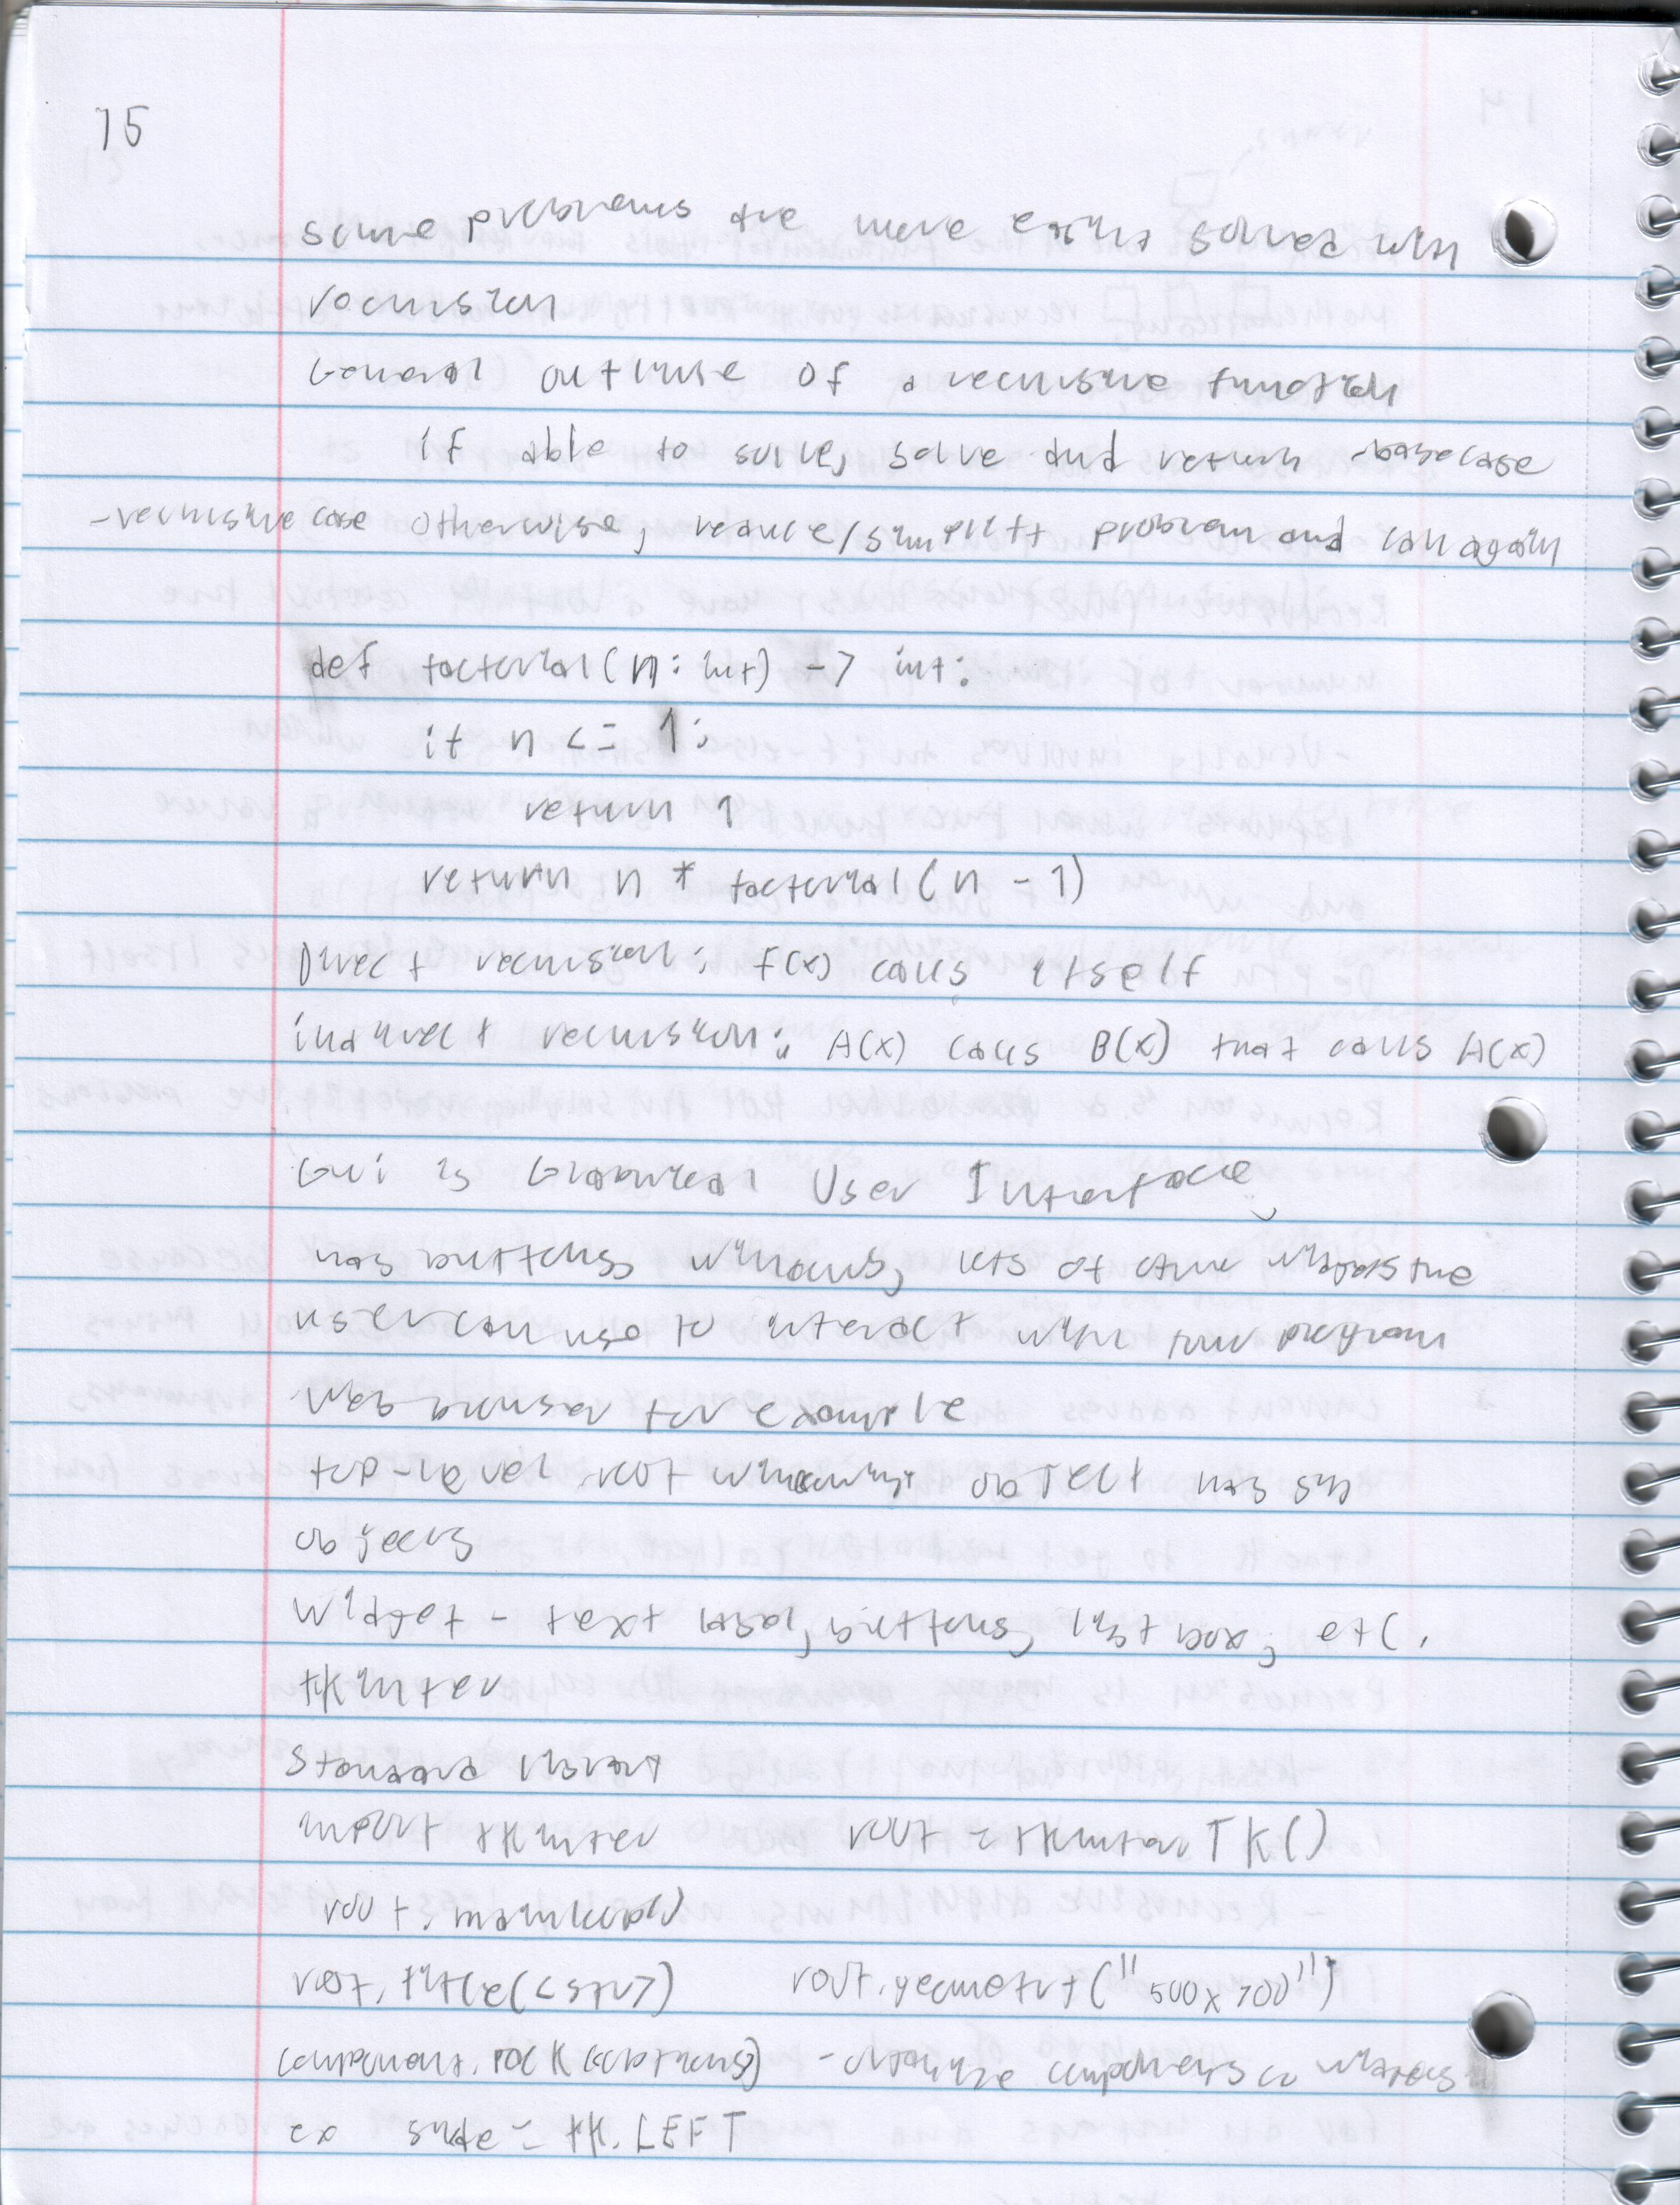 15
some problems are more easily solved with
recursion
General outline of a recursive function
if able to solve, solve and return -base case
-recursive case otherwise, reduce/simplify problem and call again
def factorial(n: int) -> int:
if n <= 1:
return 1
return n * factorial(n - 1)
Direct recursion: f(x) calls itself
indirect recursion: A(x) calls B(x) that calls A(x)
GUI is Graphical User Interface
has buttons, windows, lots of other widgets the
user can use to interact with the program
Web browser for example
top-level root windowing object has sub
objects
Widget - text label, buttons, list box, etc.
tkinter
Standard library
import tkinter root = tkinter.TK()
root.mainloop()
root.title(<str>) root.geometry("500x700")
component.pack(<options>) - organize components widgets
ex side = tk.LEFT